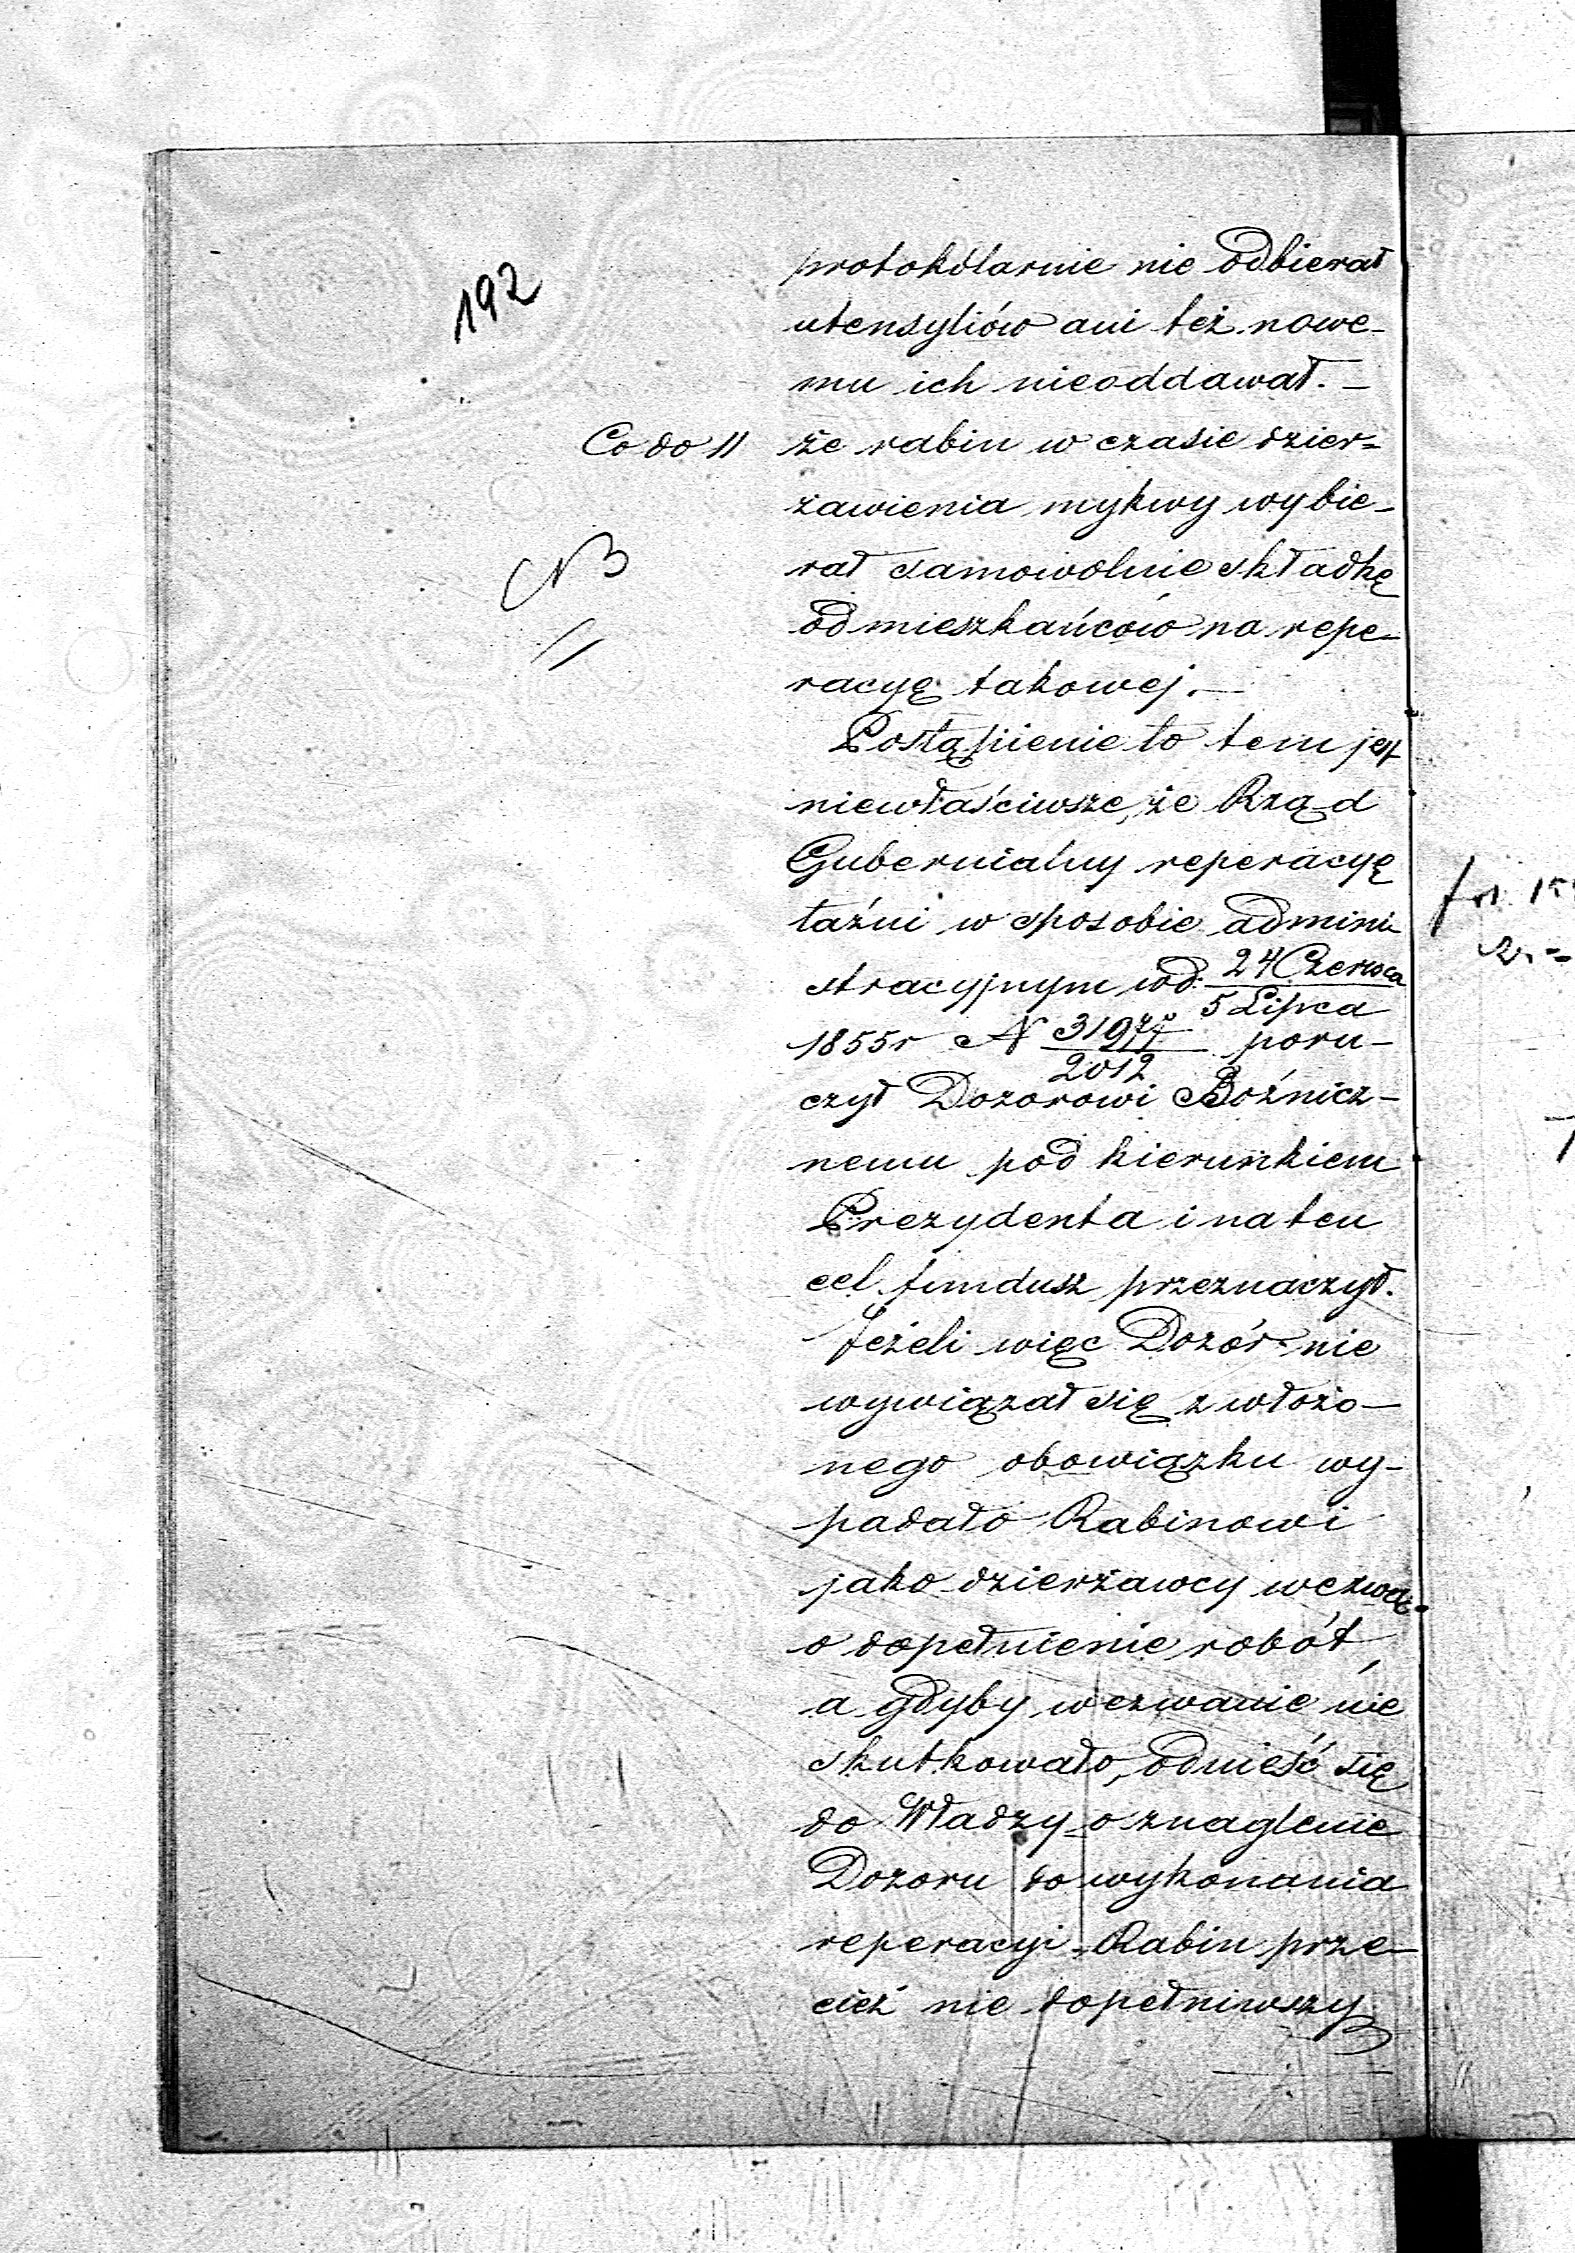 192
protokólarnie nie odbierał
utensyliów ani też nowe-
mu ich nieoddawał. -
Co do 11 że rabin w czasie dzier-
żawienia mykwy wybie-
NB
rał samowolnie składkę
od mieszkańców na repe-
racyę takowej. -
Postąpienie to tem jest
niewłaściwsze, że Rząd
Gubernialny reperacyę
łaźni w sposobie admini-
stracyjnym pod d. 24 Czerwca
5 Lipca
1855 r N 31977 poru-
2012
czył Dozorowi Bóżnicz-
nemu pod kierunkiem
Prezydenta i na ten
cel fundusz przeznaczył.
Jeżeli więc Dozór nie
wywiązał się z włożo-
nego obowiązku wy-
padało Rabinowi
jako dzierżawcy wezwać
o dopełnienie robót,
a gdyby wezwanie nie
skutkowało, odnieść się
do Władzy o znaglenie
Dozoru do wykonania
reperacyi - Rabin prze-
cież nie dopełniwszy